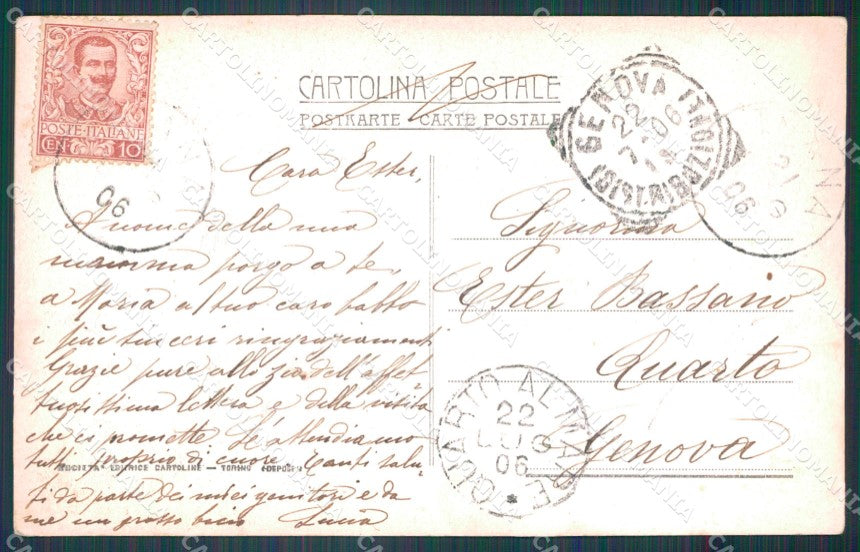 POSTE·ITALIANE
CEN. 10
CARTOLINA POSTALE
POSTKARTE CARTE POSTALE
GENOVA (DISTRIBUZIONI)
22 06
NA
06
06
Cara Ester,
A nome della mia
mamma porgo a te,
a Maria al tuo caro babbo
i più sinceri ringraziamenti
Grazie pure allo zio dell'affet
tuosissima lettera e della visita
che ci promette. Ti attendiamo
tutti proprio di cuore. Tanti salu
SOCIETA' EDITRICE CARTOLINE — TORINO
ti da parte dei miei genitori e da
me un grosso bacio Lucia
Signorina
Ester Bassano
Quarto
Genova
QUARTO AL MARE
22
LUG
06
CARTOLINOMANIA